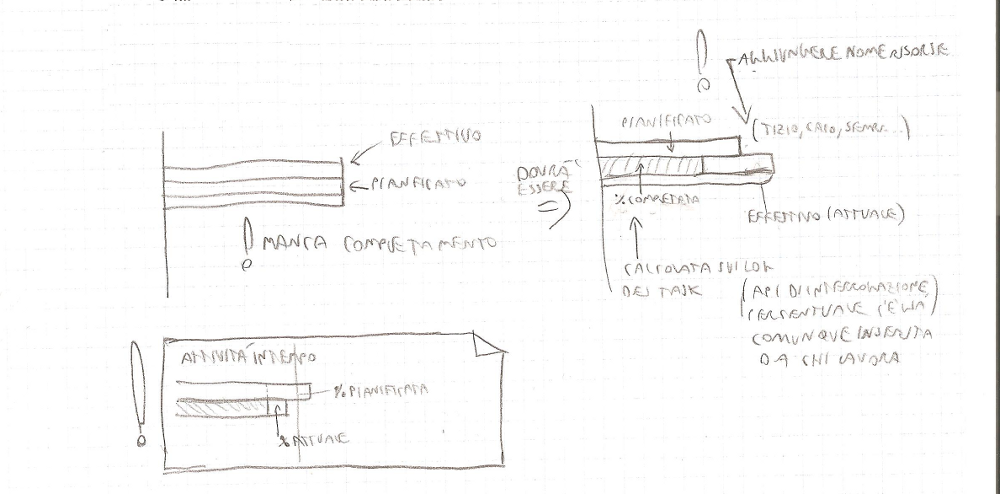 EFFETTIVO
PIANIFICATO
! MANCA COMPLETAMENTO
DOVRA'
ESSERE
=>
!
AGGIUNGERE NOME RISORSE
PIANIFICATO
(TIZIO, CAIO, SEMPR...)
% COMPLETATA
EFFETTIVO (ATTUALE)
CALCOLATA SUI LOG
DEI TASK
(API DI INTERROGAZIONE,
PERCENTUALE C'È
COMUNQUE INSERITA
DA CHI LAVORA
!
ATTIVITÀ IN TEMPO
% PIANIFICATA
% ATTUALE